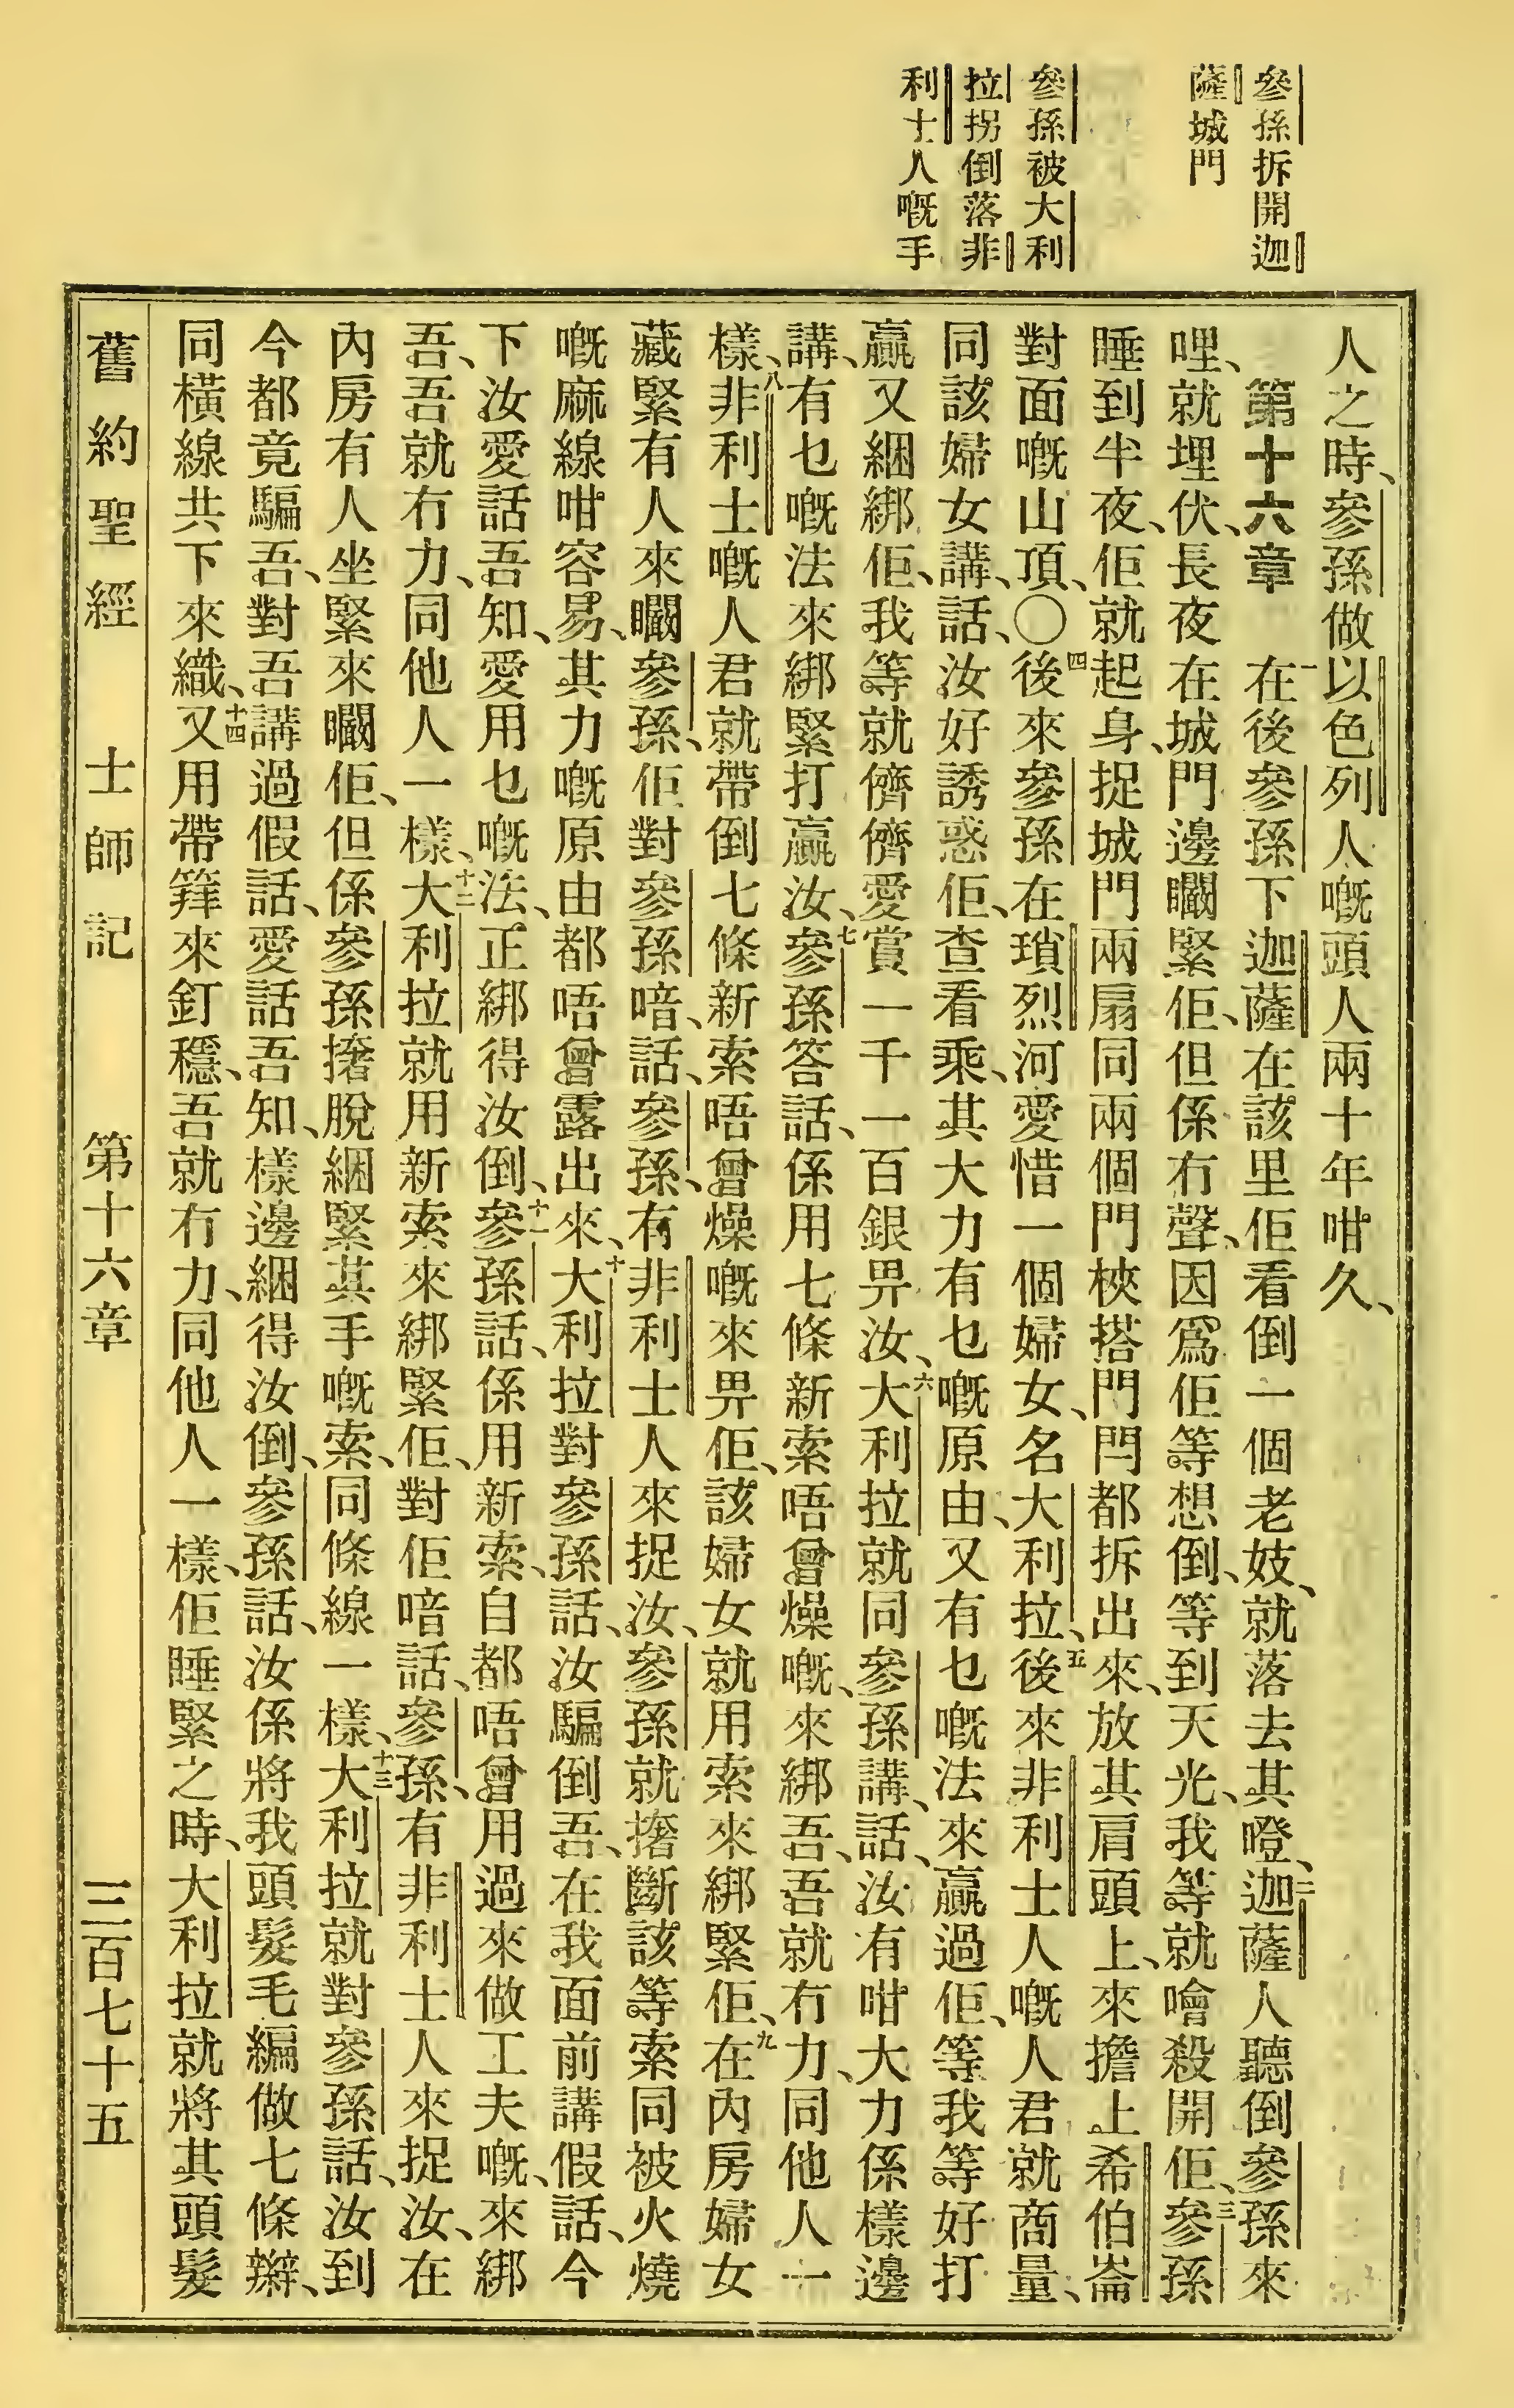 參孫拆開迦
薩城門
參孫被大利
拉拐倒落非
利士人嘅手
人之時、參孫做以色列人嘅頭人兩十年咁久、
第十六章　一在後參孫下迦薩在該里佢看倒一個老妓、就落去其嶝、二迦薩人聽倒參孫來
哩、就埋伏、長夜在城門邊矙緊佢、但係冇聲、因爲佢等想倒、等到天光、我等就噲殺開佢、三參孫
睡到半夜、佢就起身、捉城門兩扇同兩個門梜搭門閂都拆出來、放其肩頭上、來擔上希伯崙
對面嘅山頂、〇四後來參孫在瑣烈河愛惜一個婦女、名大利拉、五後來非利士人嘅人君就商量、
同該婦女講、話、汝好誘惑佢、查看乘、其大力有乜嘅原由、又有乜嘅法來贏過佢、等我等好打
贏又綑綁佢、我等就儕儕愛賞一千一百銀畀汝、六大利拉就同參孫講、話、汝有咁大力係樣邊
講、有乜嘅法來綁緊打贏汝、七參孫答話、係用七條新索唔曾燥嘅、來綁吾、吾就冇力、同他人一
樣、八非利士嘅人君就帶倒七條新索唔曾燥嘅來畀佢、該婦女就用索來綁緊佢、九在內房婦女
藏緊有人來矙參孫、佢對參孫喑、話、參孫、有非利士人來捉汝、參孫就撦斷該等索同被火燒
嘅麻線咁容易、其力嘅原由都唔曾露出來、十大利拉對參孫話、汝騙倒吾、在我面前講假話、今
下汝愛話吾知、愛用乜嘅法、正綁得汝倒、十一參孫話、係用新索、自都唔曾用過來做工夫嘅、來綁
吾、吾就冇力、同他人一樣、十二大利拉就用新索來綁緊佢、對佢喑話、參孫、有非利士人來捉汝、在
內房有人坐緊來矙佢、但係參孫撦脫綑緊其手嘅索、同條線一樣、十三大利拉就對參孫話、汝到
今都竟騙吾、對吾講過假話、愛話吾知、樣邊綑得汝倒、參孫話、汝係將我頭髮毛編做七條辮、
同橫線共下來織、十四又用帶箨來釘穩、吾就冇力、同他人一樣、佢睡緊之時、大利拉就將其頭髮
舊約聖經　士師記　第十六章　三百七十五